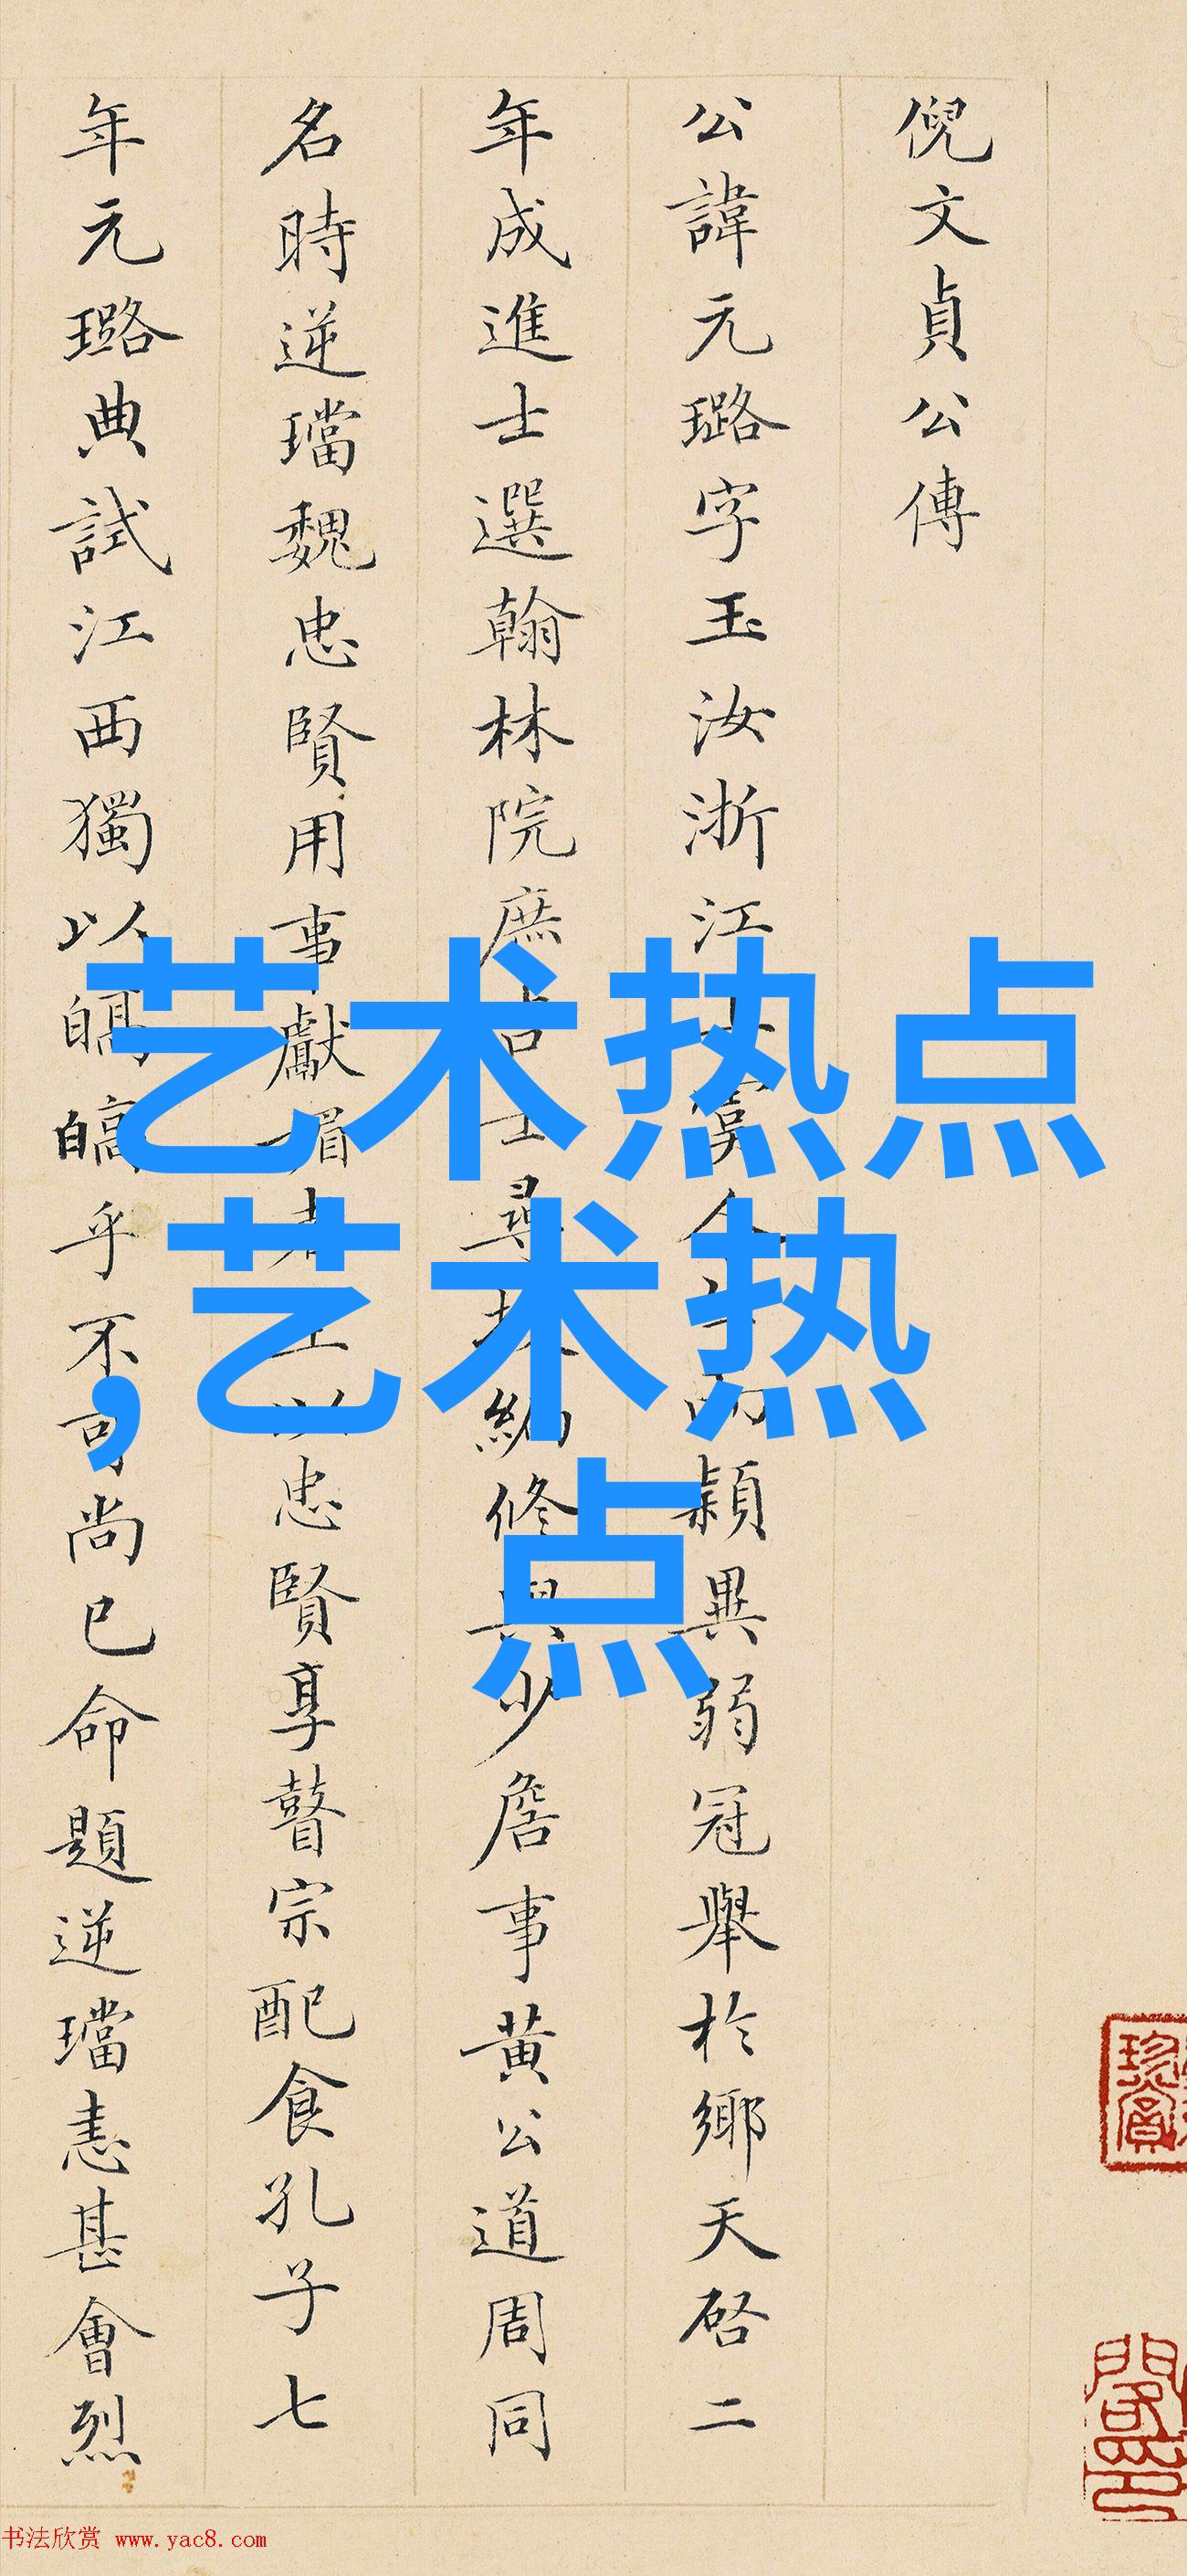 倪文貞公傳
公諱元璐字玉汝浙江上虞人生而穎異弱冠舉於鄉天啓二
年成進士選翰林院庶吉士尋授編修與少詹事黄公道周同
名時逆璫魏忠賢用事獻媚者至以忠賢享瞽宗配食孔子七
年元璐典試江西獨以皜皜乎不可尚已命題逆璫恚甚會烈
艺术热点
，艺术热
点
珍賞
书法欣赏 www.yac8.com